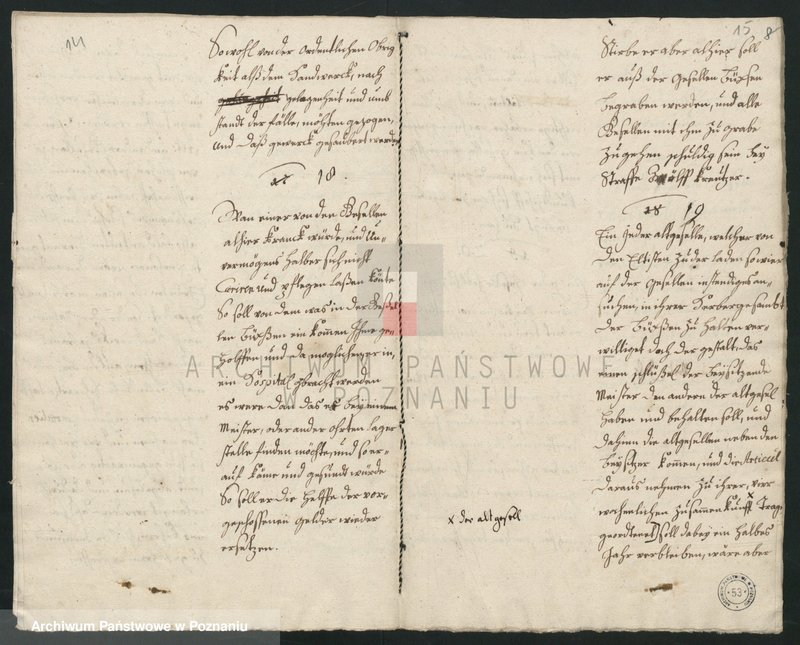 14
Sowohl von der ordentlichen Obrig
keit alß dem Handwerck, nach
gelegenheit und umb
standt der fälle, möchten gezogen,
und daß gewerck gesaubert werden
18.
Wan einer von den Gesellen
alhier kranck würde, und Un-
vermögens halber sich nicht
Curiren und pflegen laßen könte
So soll von dem was in der Gesel
len büxßen ein kommen Ihme ge-
holffen, und da möglich er in
ein Hospital gebracht werden
es were dan das er bey einem
Meister, oder ander ohrten lager
stelle finden möchte, und so er
auf käme und gesundt würde
So soll er die helffte der vor-
geschossenen gelder wieder
ersetzen.
15
8
Stirbe er aber alhier soll
er auß der Gesellen büxsen
begraben werden, und alle
Gesellen mit ihm zu grabe
zu gehen schuldig sein bey
Straffe Zwölff Kreutzer.
19
Ein Jeder altgeselle, welcher von
den Eltisten zu der laden so wie
auf der Gesellen instendiges an-
suchen, in ihrer Herberge
der büxßen zu halten ver-
williget doch der gestalt, das
einen schlüßel der beysitzende
Meister den andern der altgesel
haben und behalten soll, und
dahinn die altgesellen neben den
beysitzer kommen, und die Articul
daraus nehmen zu ihrer, vier
wochentlichen zusammenkunfft
x
geordtenet, soll dabey ein halbes
Jahr verbleiben, wäre aber
x der altgesell
ARCHIWUM PAŃSTWOWE
W POZNANIU
53
Archiwum Państwowe w Poznaniu